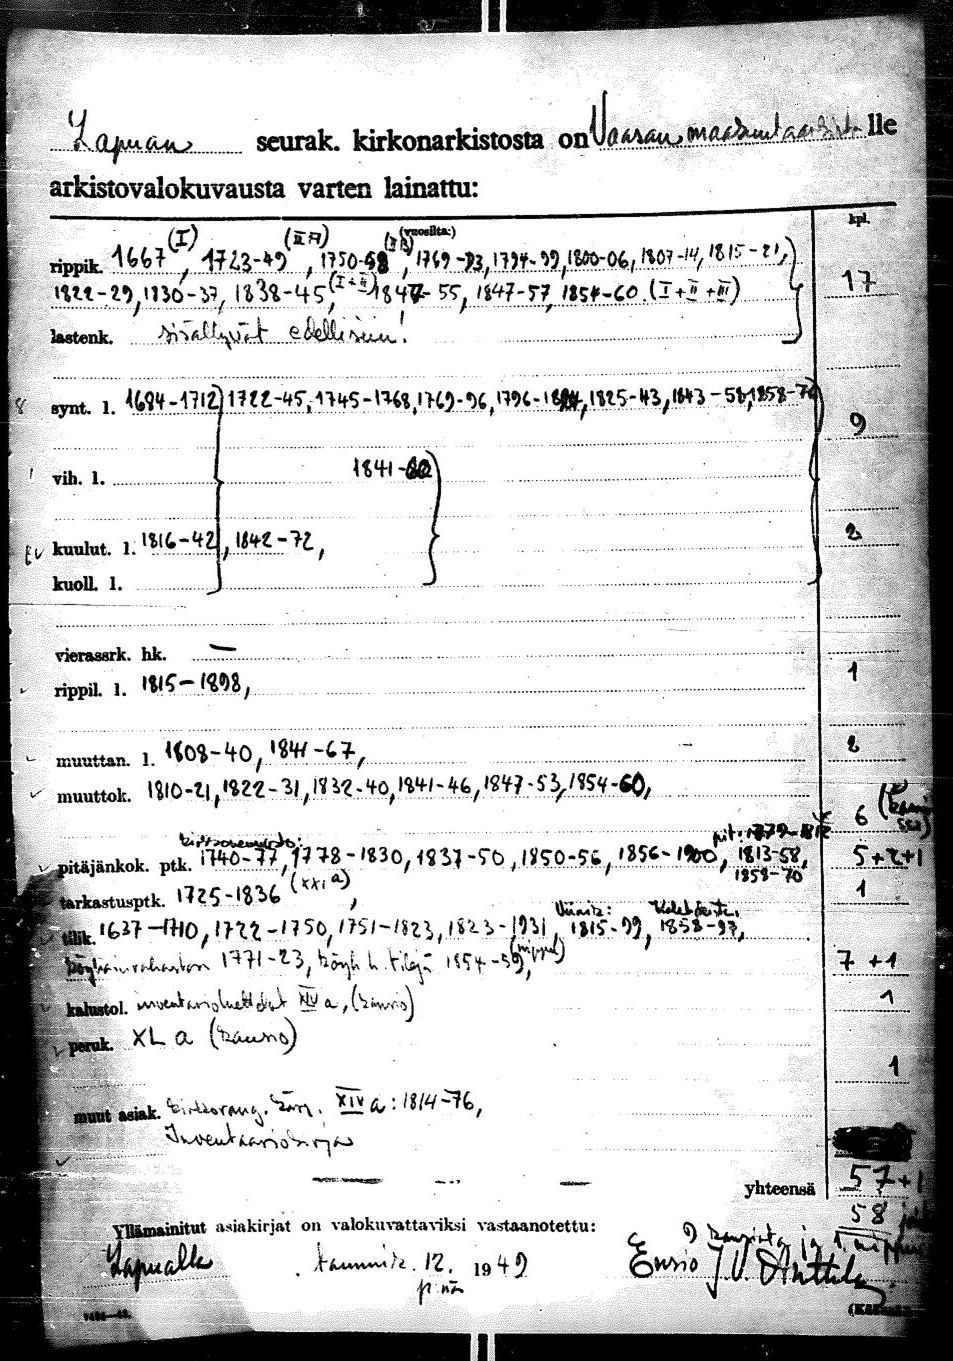 Lapuan seurak. kirkonarkistosta on Vaasan maakuntaarkisto lle
arkistovalokuvausta varten lainattu:
kpl.
(I) (II A) (II B) (vuosilta:)
rippik. 1667, 1723-49, 1750-68, 1769-93, 1794-99, 1800-06, 1807-14, 1815-21,
1822-29, 1830-37, 1838-45, (I+II) 1847-55, 1847-57, 1854-60 (I+II+III) 17
lastenk. sisältyvät edellisiin!
8 synt. l. 1684-1712, 1722-45, 1745-1768, 1769-96, 1796-1824, 1825-43, 1843-58, 1858-70 9
vih. l. 1841-62
kuulut. l. 1816-42, 1842-72, 2
kuoll. l.
vierassrk. hk. —
rippil. l. 1815-1898, 1
muuttan. l. 1808-40, 1841-67, 2
muuttok. 1810-21, 1822-31, 1832-40, 1841-46, 1847-53, 1854-60, 6
pit: 1779-1812
pitäjänkok. ptk. 1740-77, 1778-1830, 1837-50, 1850-56, 1856-1900, 1813-58, 5+2+1
1858-70
tarkastusptk. 1725-1836 (XXI a), 1
tilik. 1637-1710, 1722-1750, 1751-1823, 1823-1931, 1815-99, 1858-97,
1771-23, 1854-59, (nippu) 7+1
kalustol. inventarioluettelot XIV a, (kansio) 1
peruk. XL a (kansio)
1
muut asiak. XIV a: 1814-76,
Inventaariokirja
yhteensä 57+1
58
Yllämainitut asiakirjat on valokuvattaviksi vastaanotettu:
Lapualla tammik. 12. 1949 Ensio J. V. Anttila
p:nä